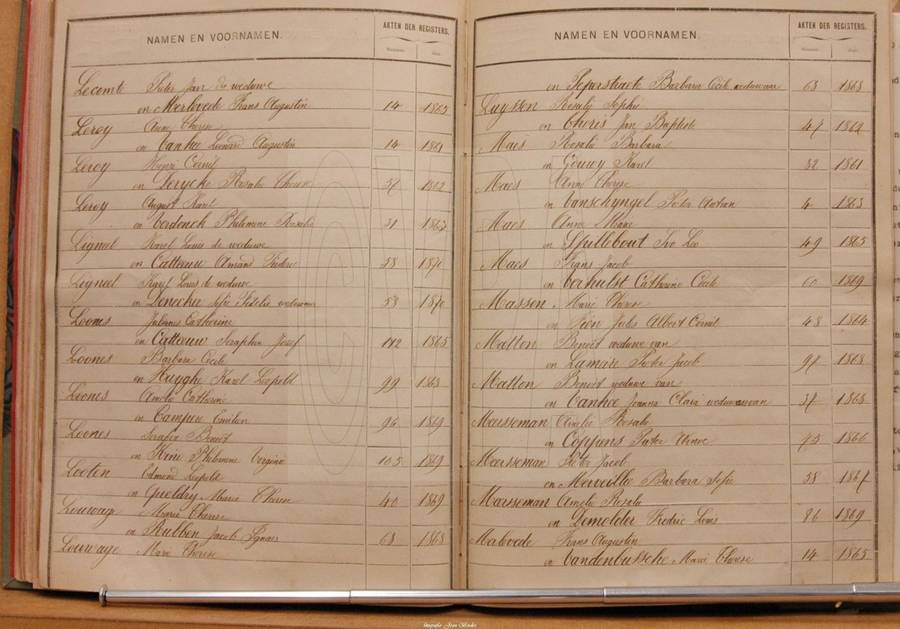 NAMEN EN VOORNAMEN.
AKTEN DER REGISTERS.
Lecomte Pieter Jan de weduwe
en Merlevede Frans Augustin 14 1865
Leroy Anne Therese
en Vanhee Leonard Augustin 14 1861
Leroy Henri Cornil
en Serycke Rosalie Therese 37 1862
Leroy August Karel
en Verdonck Philomene Rosalie 31 1867
Lignel Karel Louis de weduwe
en Cattouw Amand Isidore 58 1870
Lignel Karel Louis de weduwe
en Sofie Fidelia weduwe 53 1870
Loones Catherine
en Cattouw Seraphin Josef 112 1865
Loones Barbara Cecile
en Huyghe Karel Leopold 99 1868
Loones Amelie Catherine
en Campe Emilien 96 1869
Loones Serafin Benoit
en Philomene Virginie 105 1869
Looten Edmond Leopold
en Gueldry Marie Therese 40 1869
Louwage Marie Therese
en Rubben Jacob Ignace 68 1868
Louwage Marie Therese
NAMEN EN VOORNAMEN.
AKTEN DER REGISTERS.
en Peperstraete Barbara Cecile weduwe van 63 1868
Luyssen Rosalie Sophie
en Theris Jan Baptiste 47 1862
Maes Rosalie Barbara
en Gouwy Karel 32 1861
Maes Anne Therese
en Vanschyngel Pieter 4 1863
Maes Anne
en Spillebout Ivo Leo 49 1865
Maes Frans Jacob
en Verhulst Catherine Cecile 60 1869
Massen Marie Therese
en Jules Albert Cornil 48 1864
Matton Benoit weduwe van
en Lamire Pieter Jacob 97 1868
Matton Benoit weduwe van
en Vanhee Joanna Clara weduwe van 37 1868
Meesseman Amelie Rosalie
en Coppens Pieter 95 1866
Meesseman Pieter Jacob
en Merveille Barbara Sofie 58 1867
Masseman Amelie Rosalie
en Demolder Fredric Louis 86 1869
Melvede Frans Augustin
en Vandenbussche Marie Therese 14 1865
fotografie Jean